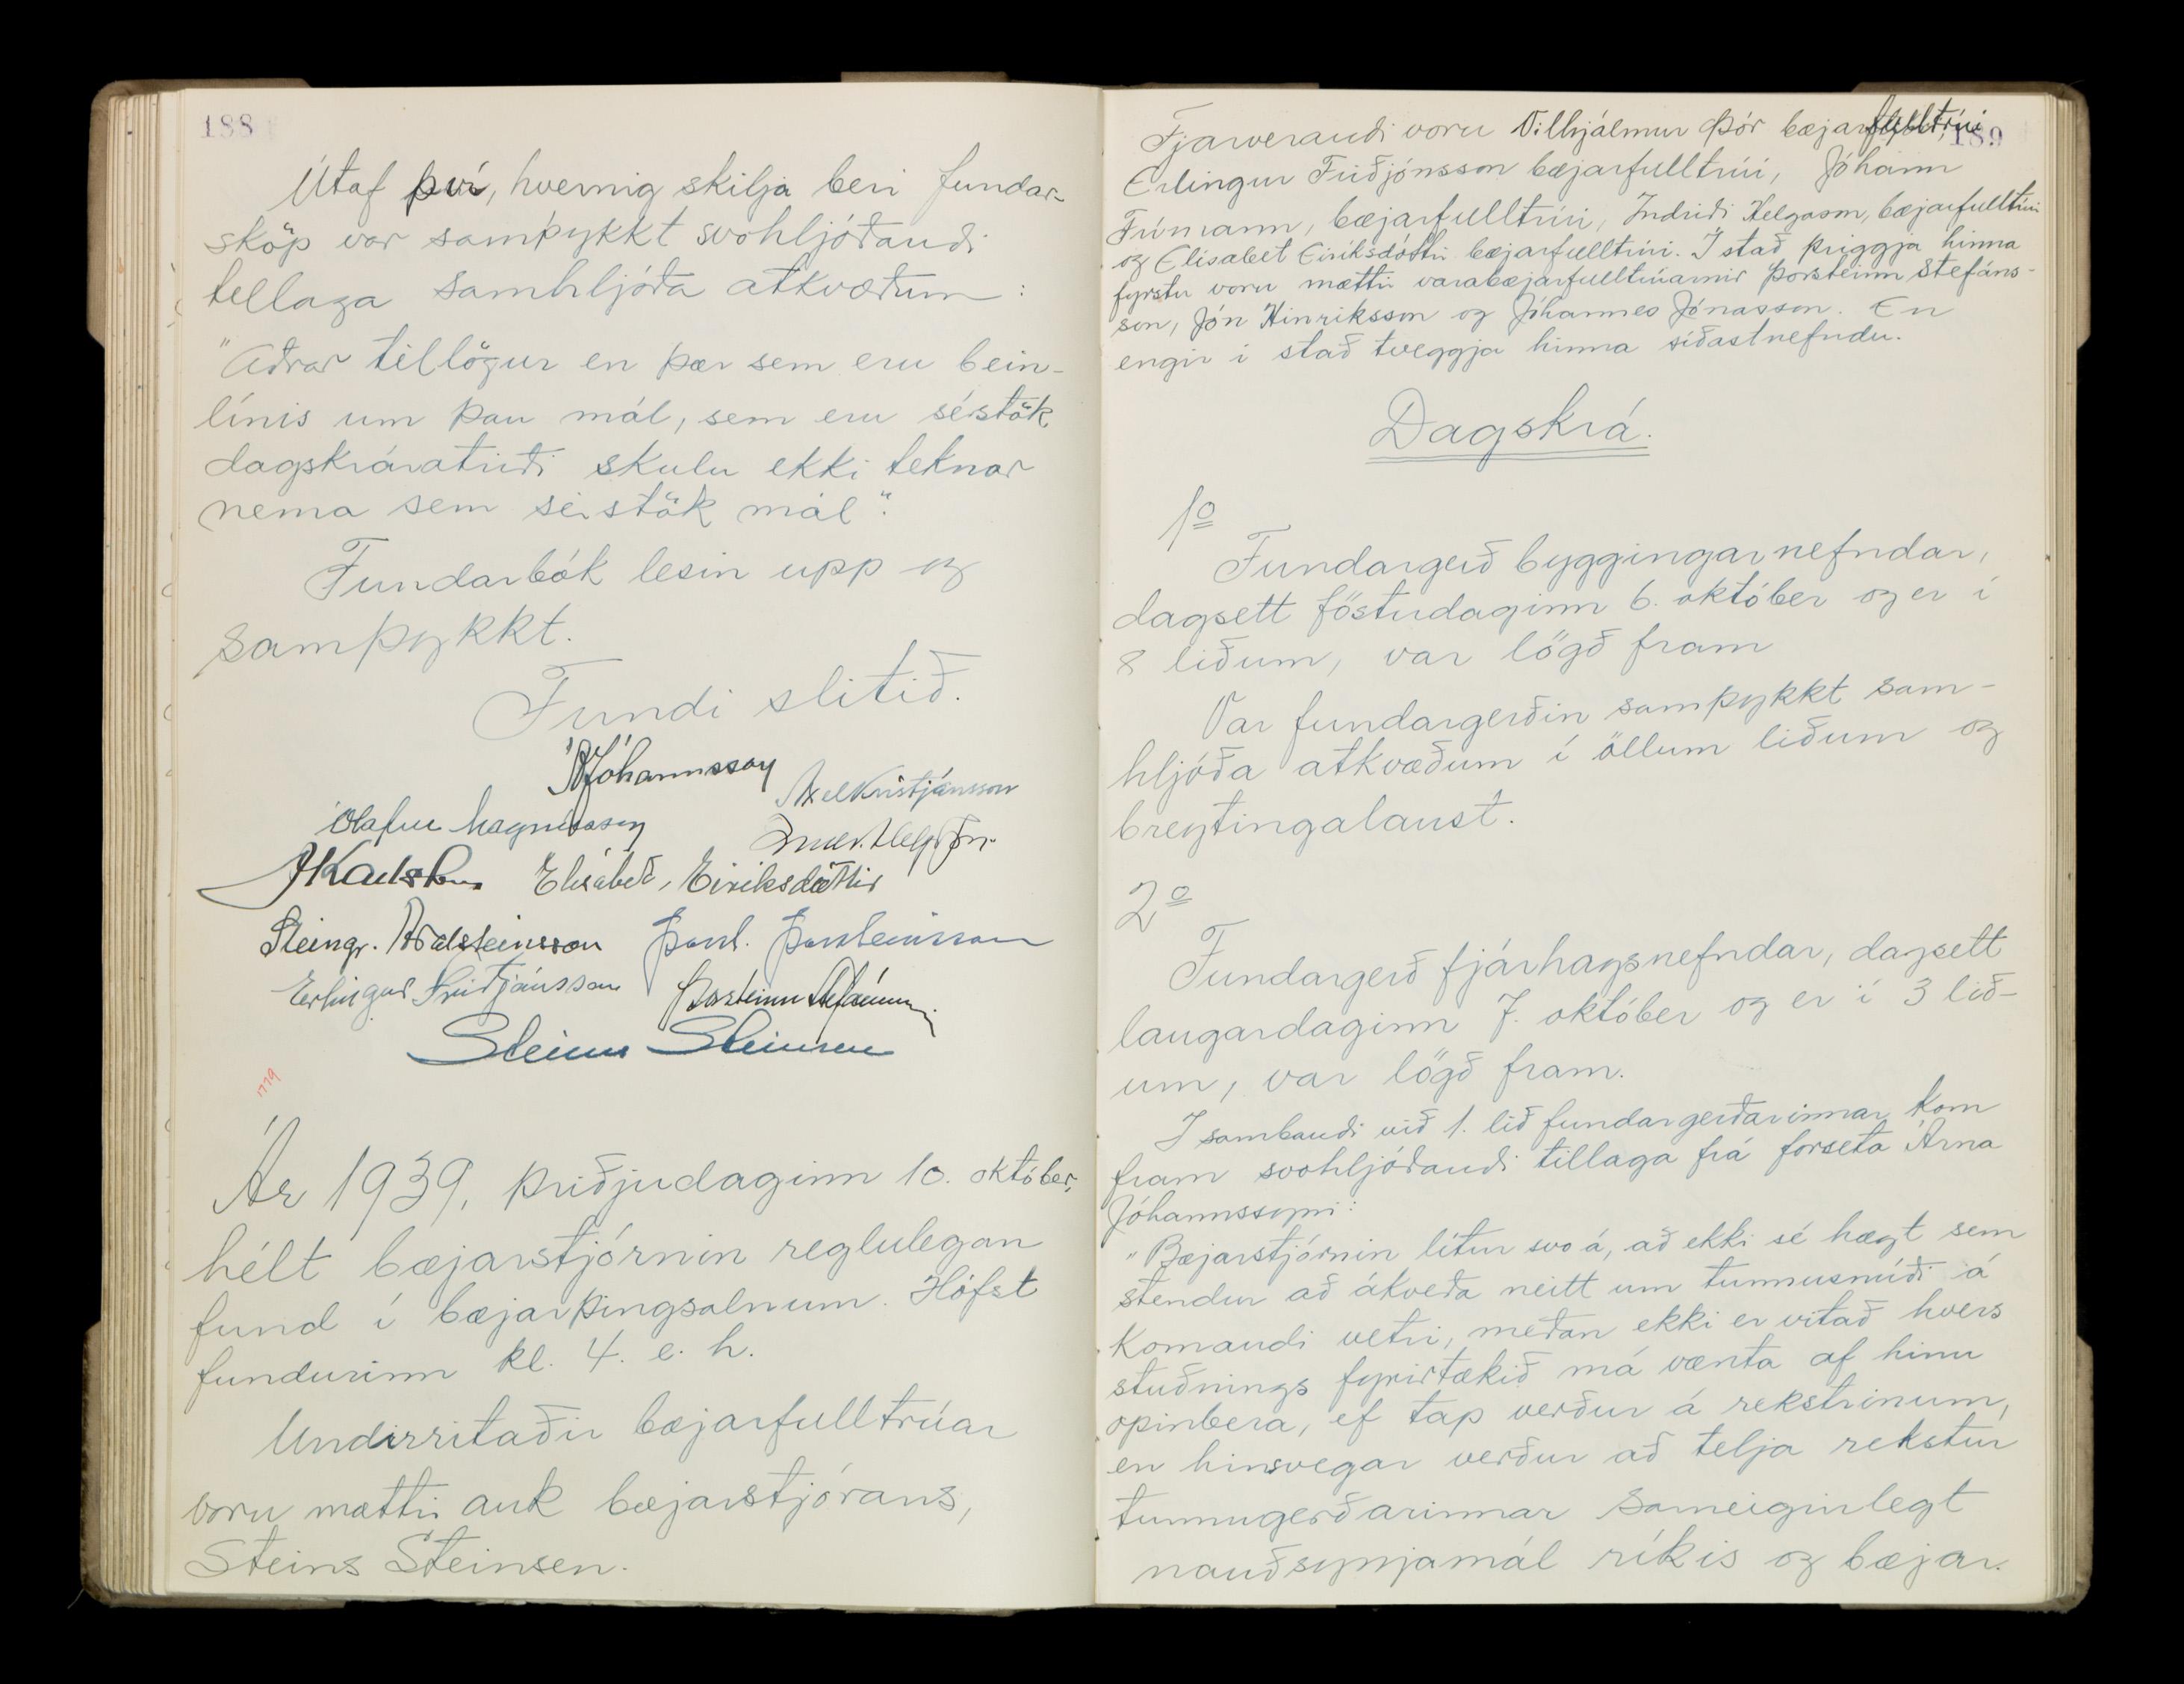 188
Útaf því, hvernig skilja beri fundar-
sköp var samþykkt svohljóðandi
tillaga samhljóða atkvæðum:
"Aðrar tillögur en þær sem eru bein-
línis um þau mál, sem eru sérstök
dagskráratriði skulu ekki teknar
nema sem sérstök mál".
Fundarbók lesin upp og
samþykkt.
Fundi slitið.
Á Jóhannsson
Axel Kristjánsson
Ólafur Magnússon
Indr. Helgason
J Karlsson Elísabet Eiríksdóttir
Steingr. Aðalsteinsson Þorst. Þorsteinsson
Erlingur Friðjónsson Þorsteinn Stefánsson
Steinn Steinsen
Ár 1939, þriðjudaginn 10. október,
hélt bæjarstjórnin reglulegan
fund í bæjarþingsalnum. Hófst
fundurinn kl. 4. e. h.
Undirritaðir bæjarfulltrúar
voru mættir auk bæjarstjórans,
Steins Steinsen.
189
Fjarverandi voru Vilhjálmur Þór bæjarfulltrúi
Erlingur Friðjónsson bæjarfulltrúi, Jóhann
Frímann, bæjarfulltrúi, Indriði Helgason, bæjarfulltrúi
og Elisabet Eiríksdóttir bæjarfulltrúi. Í stað þriggja hinna
fyrstu voru mættir varabæjarfulltrúarnir Þorsteinn Stefáns-
son, Jón Hinriksson og Jóhannes Jónasson. En
engir í stað tveggja hinna síðastnefndu.
Dagskrá.
1º
Fundargerð byggingarnefndar,
dagsett föstudaginn 6. október og er í
8 liðum, var lögð fram
Var fundargerðin samþykkt sam-
hljóða atkvæðum í öllum liðum og
breytingalaust.
2º
Fundargerð fjárhagsnefndar, dagsett
laugardaginn 7. október og er í 3 lið-
um, var lögð fram.
Í sambandi við 1. lið fundargerðarinnar kom
fram svohljóðandi tillaga frá forseta Árna
Jóhannssyni:
"Bæjarstjórnin lítur svo á, að ekki sé hægt sem
stendur að ákveða neitt um tunnusmíði á
komandi vetri, meðan ekki er vitað hvers
stuðnings fyrirtækið má vænta af hinu
opinbera, ef tap verður á rekstrinum,
en hinsvegar verður að telja rekstur
tunnugerðarinnar sameiginlegt
nauðsynjamál ríkis og bæjar.